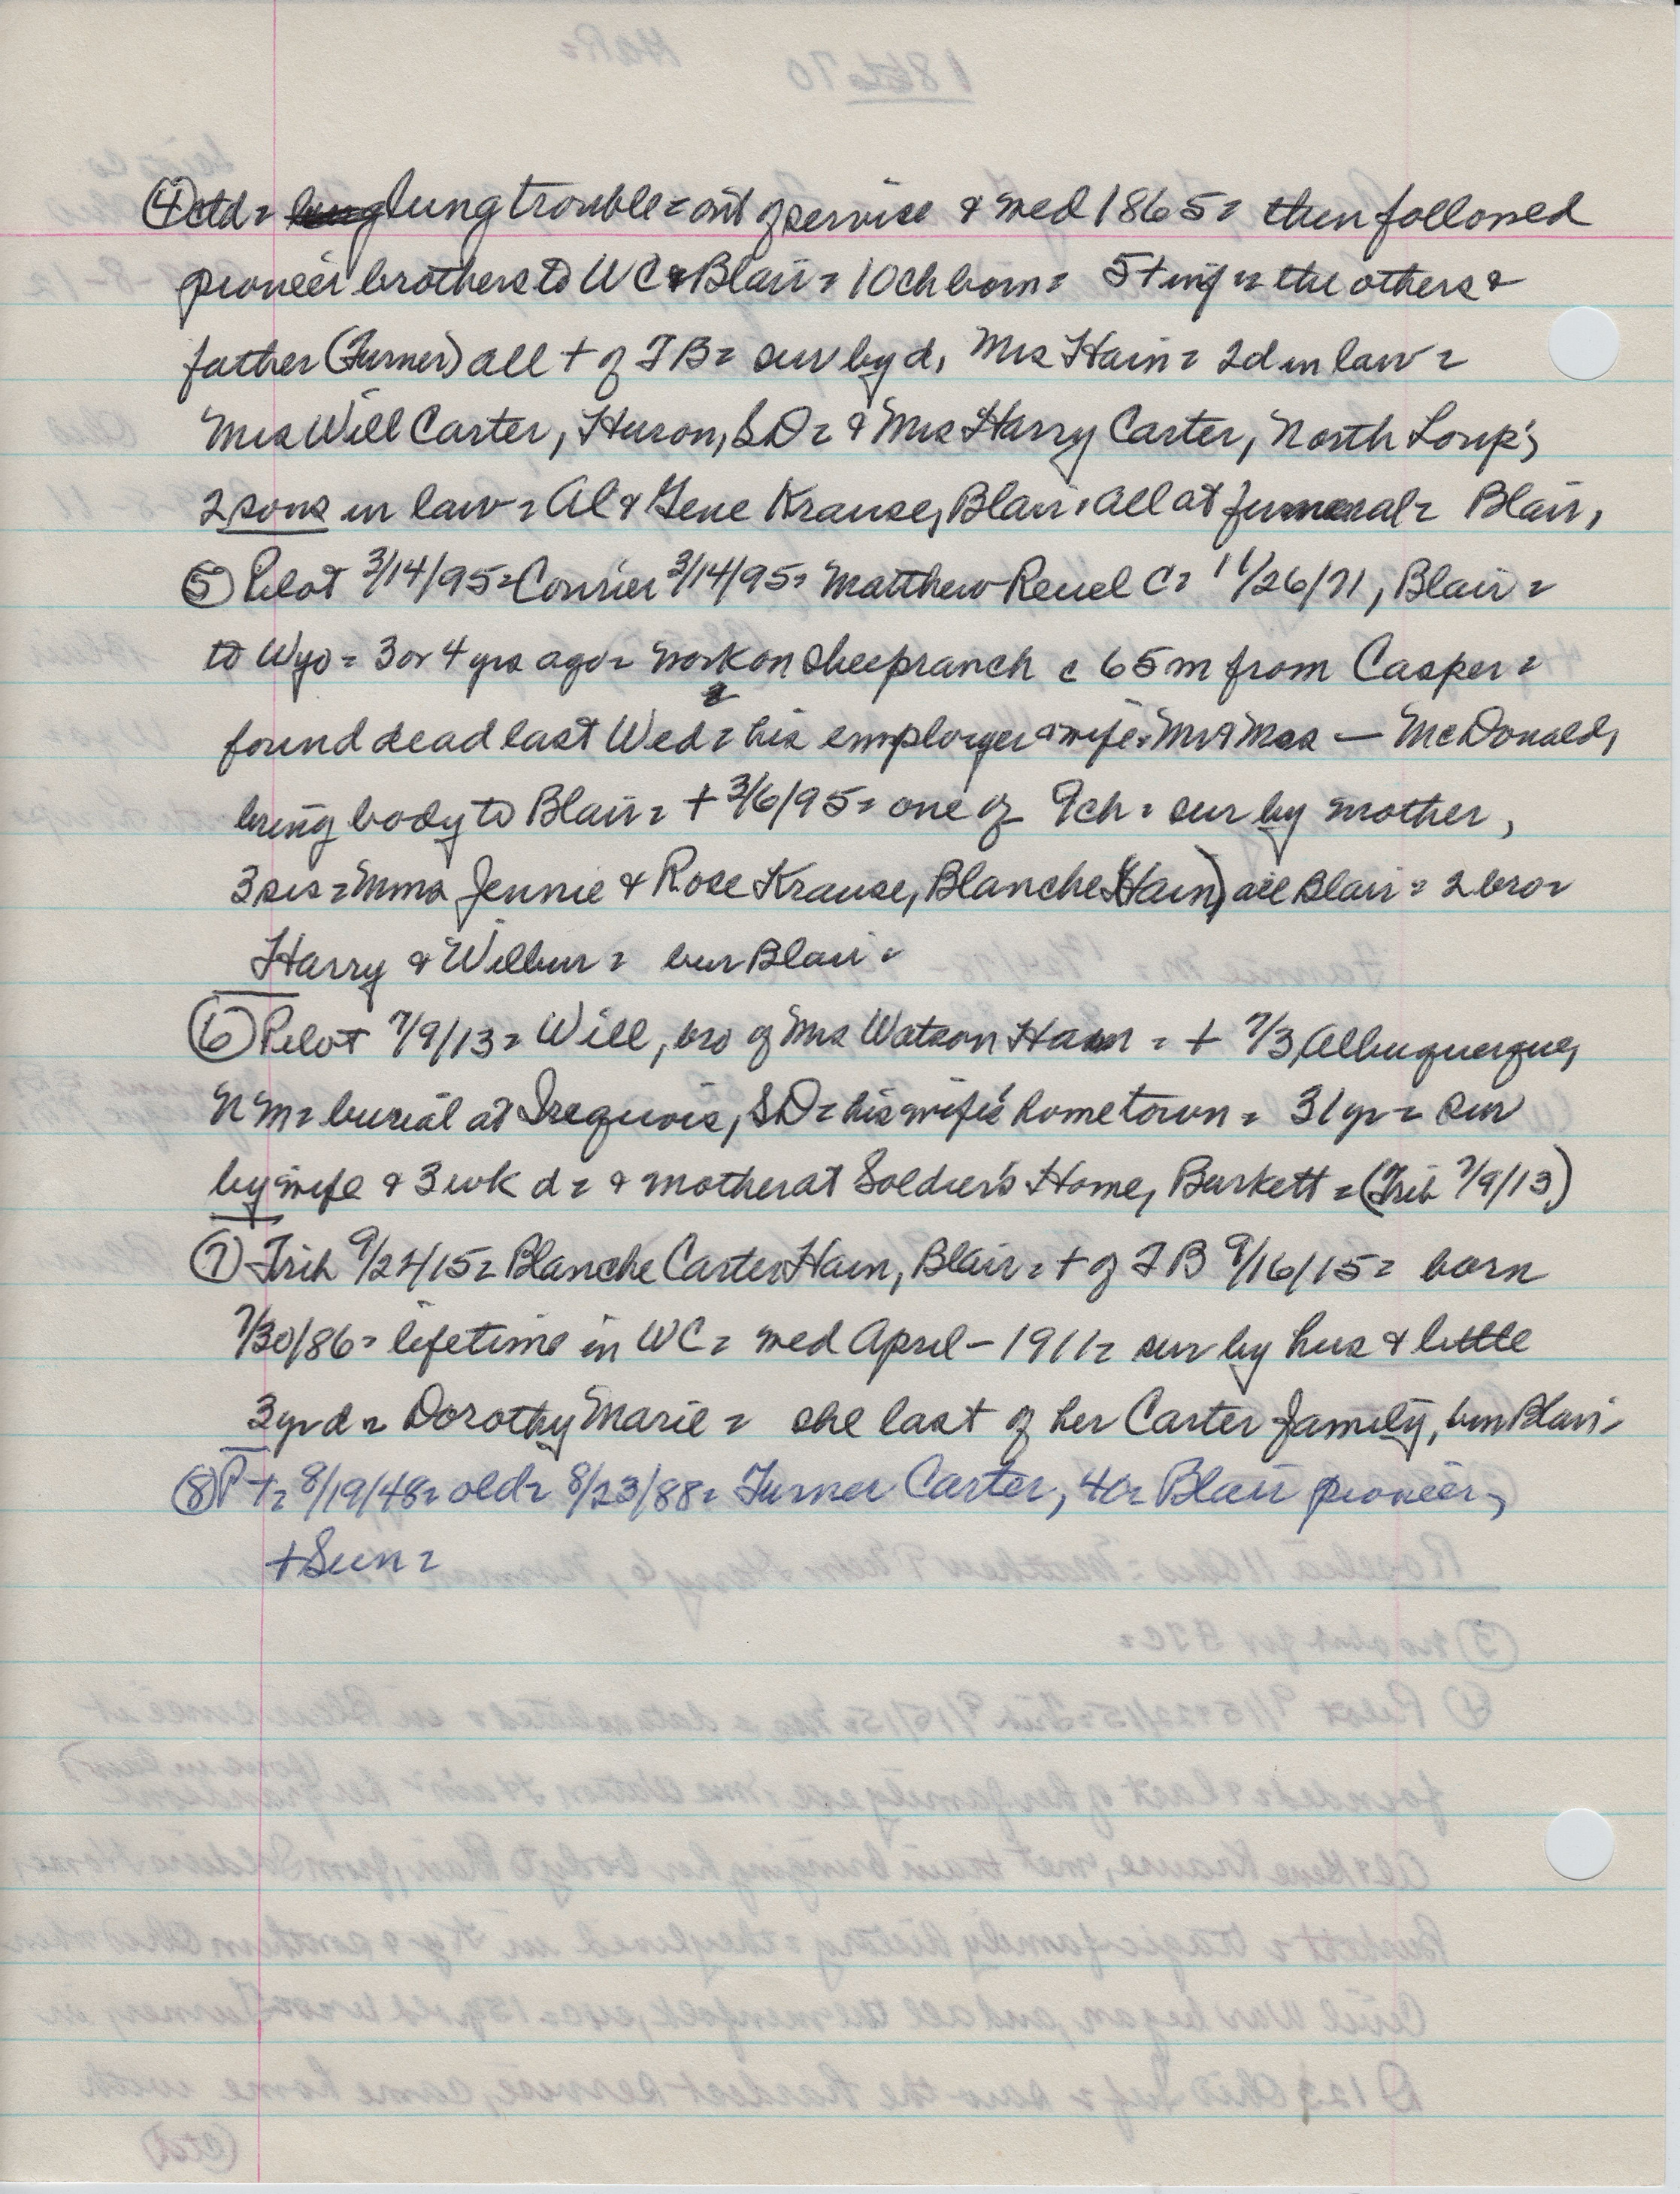 ④ctd= lung trouble= out of service & med 1865= then followed
pioneer brothers to WC & Blair= 10 ch born= 5 + inf= the others &
father (Turner) all + of TB= sur by d, Mrs Hain= 2 d in law=
Mrs Will Carter, Huron, SD= & Mrs Harry Carter, North Loup;
2 sons in law= Al & Gene Krause, Blair, all at funeral= Blair,
⑤ Pilot 3/14/95= Courier 3/14/95= Matthew Reuel C= 11/26/71, Blair=
to Wyo= 3 or 4 yrs ago= work on sheep ranch c 65 m from Casper=
found dead last Wed= his employer & wife, Mr & Mrs — McDonald,
bring body to Blair= + 3/6/95= one of 9 ch= sur by mother,
3 sis= Mms Jennie & Rose Krause, Blanche (Hain) all Blair= 2 bro=
Harry & Wilbur= bur Blair=
⑥ Pilot 7/9/13= Will, bro of Mrs Watson Hain= + 7/3, Albuquerque,
NM= burial at Irequois, SD= his wife's home town= 31 yr= sur
by wife & 3 wk d= & mother at Soldier's Home, Burkett= (Trib 7/9/13)
⑦ Trib 9/24/15= Blanche Carter Hain, Blair= + of TB 9/16/15= born
7/30/86= lifetime in WC= med April - 1911= sur by hus & little
3 yr d= Dorothy Marie= she last of her Carter family, bur Blair=
⑧ P += 8/19/48= old= 8/23/88= Turner Carter, 40= Blair pioneer,
+ Sun=